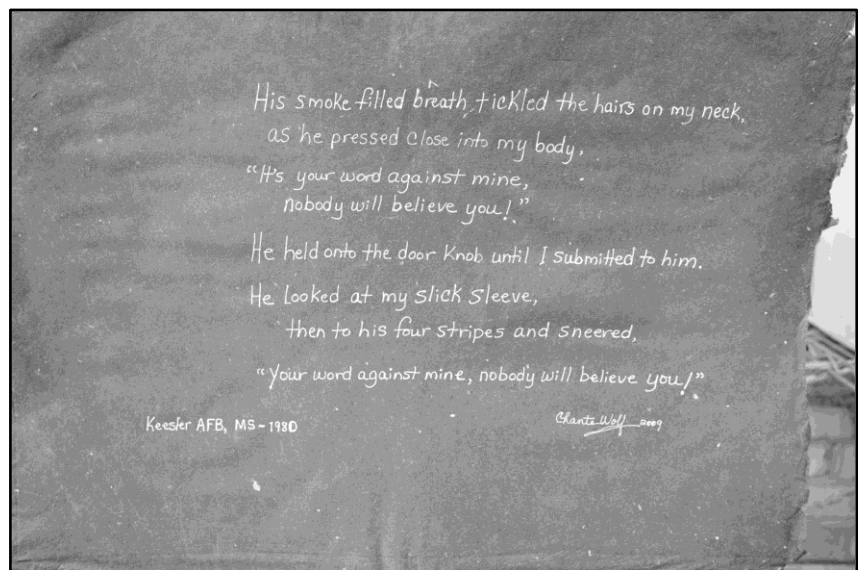 His smoke filled breath, tickled the hairs on my neck,
as he pressed close into my body,
“It's your word against mine,
nobody will believe you!”
He held onto the door knob until I submitted to him.
He looked at my slick sleeve,
then to his four stripes and sneered,
“Your word against mine, nobody will believe you!”
Keesler AFB, MS ~ 1980
Chante Wolf 2009